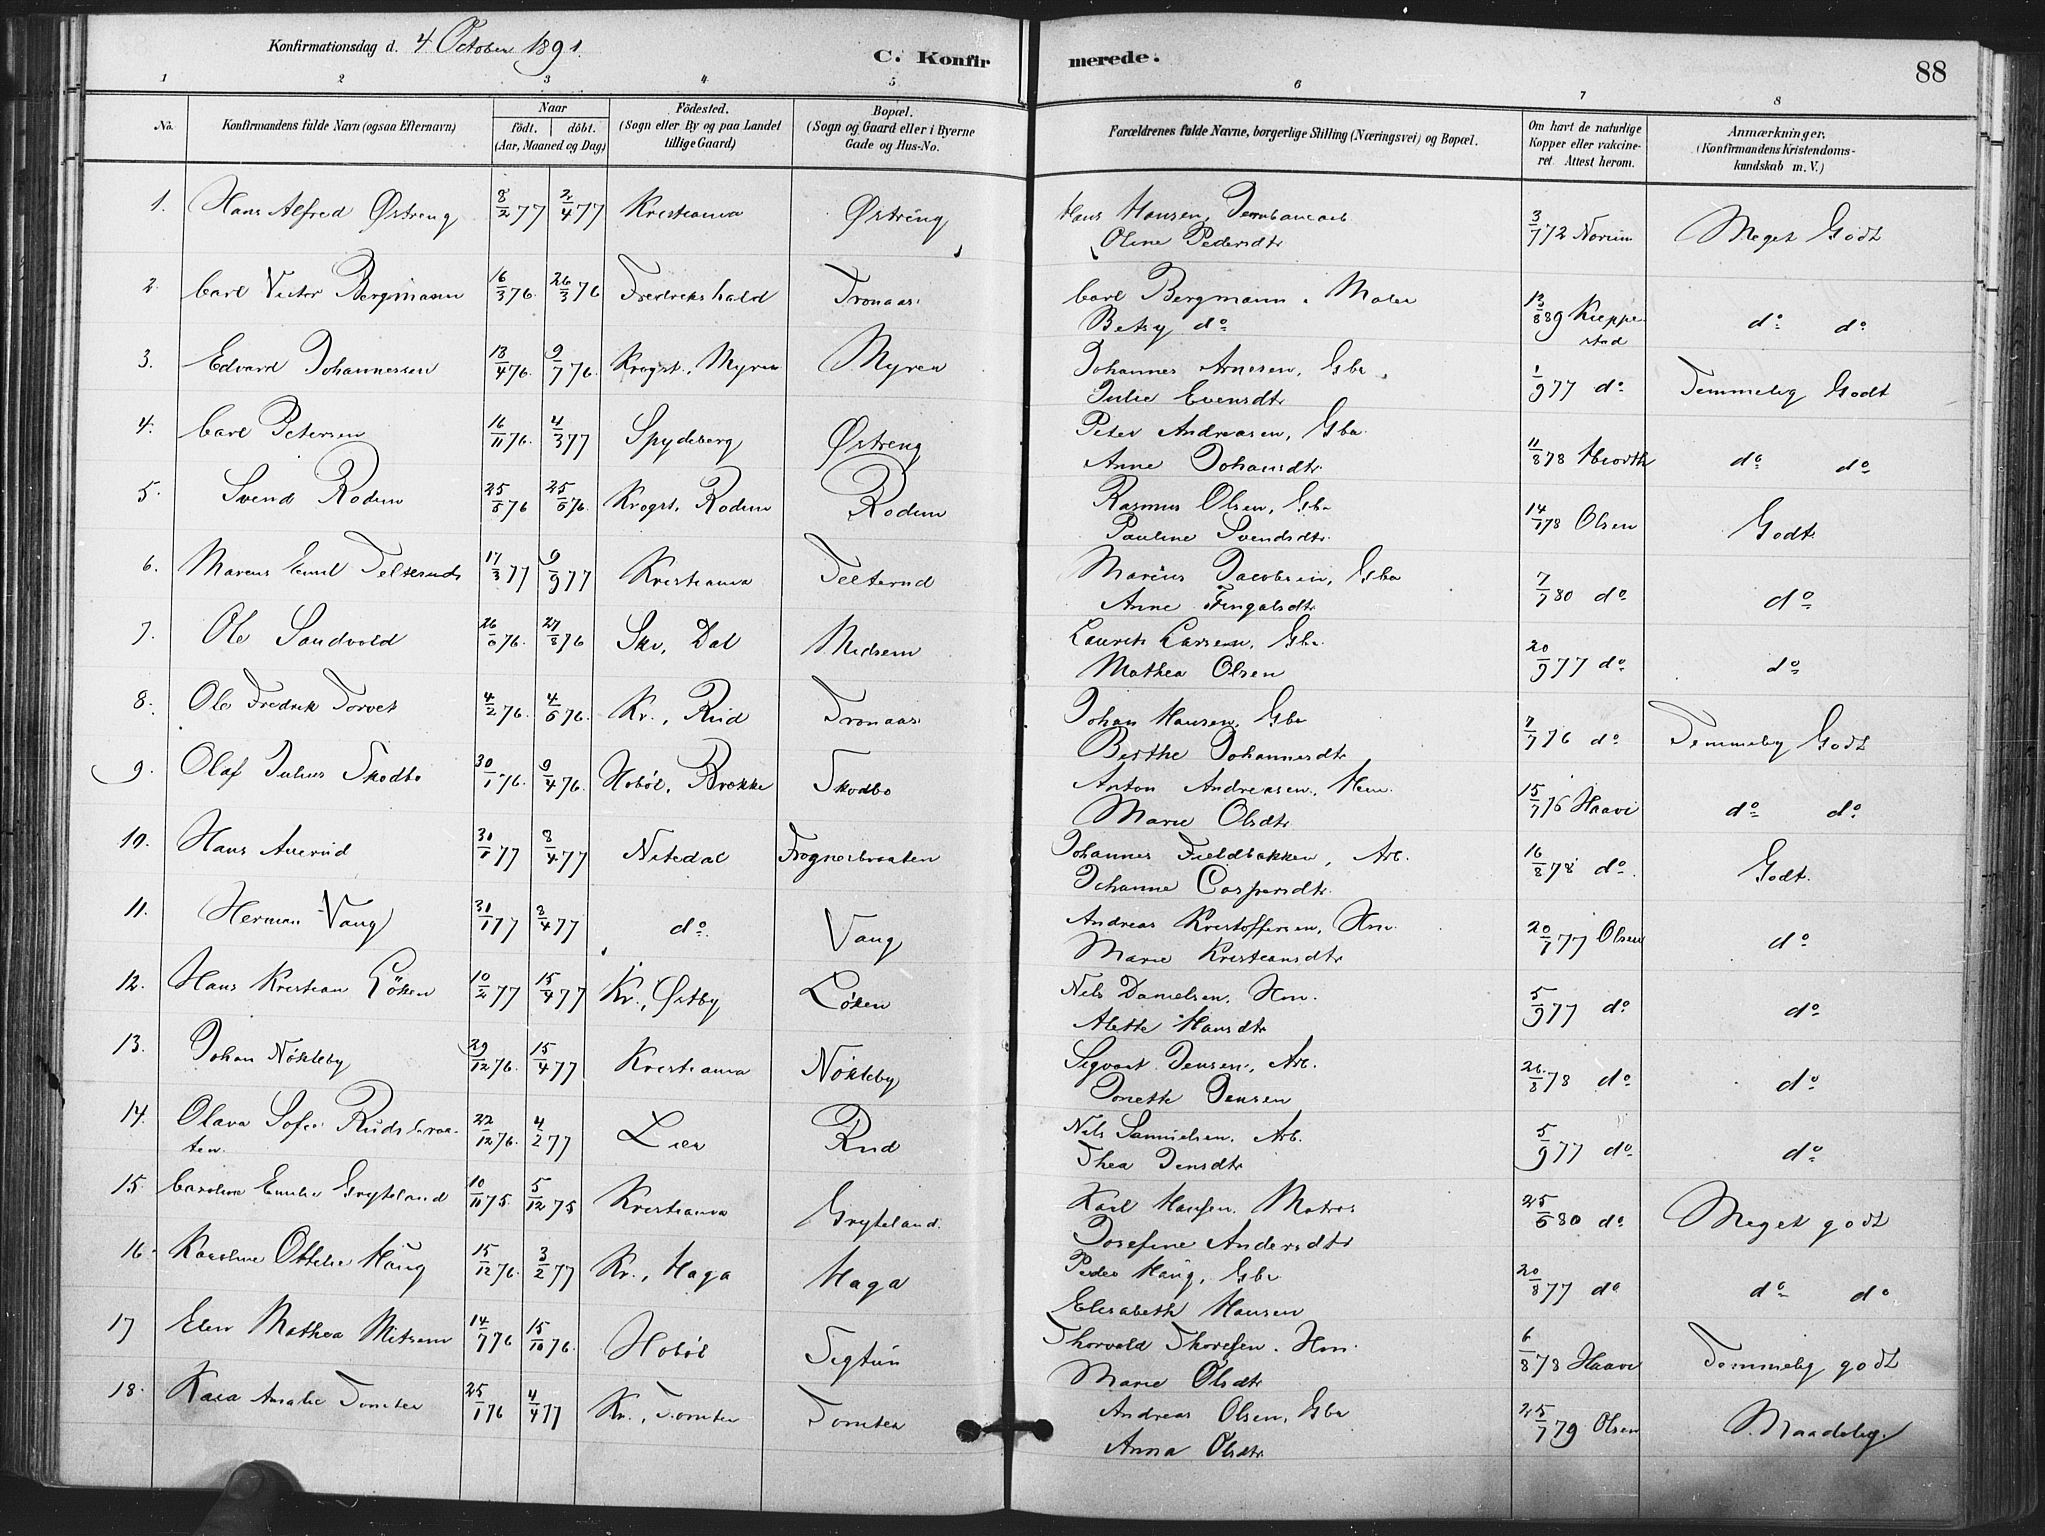 Konfirmationsdag d. 4 October 1891.
C. Konfirmerede.
88
1 2 3 4 5 6 7 8
No. Konfirmandens fulde Navn (ogsaa Efternavn) Naar födt. döbt. (Aar, Maaned og Dag) Födested. (Sogn eller By og paa Landet tillige Gaard) Bopæl. (Sogn og Gaard eller i Byerne Gade og Hus-No. Forældrenes fulde Navne, borgerlige Stilling (Næringsvei) og Bopæl. Om havt de naturlige Kopper eller vakcineret. Attest herom. Anmærkninger, (Konfirmandens Kristendomskundskab m. V.)
1. Hans Alfred Østreng 8/2 77 2/4 77 Kristiania Østreng Hans Hansen, 3/7 72 Norum Meget Godt
Oline Pedersdtr
2. Carl Victor Bergmann 16/3 76. 26/3 76 Fredrikshald Tronaas Carl Bergmann, Maler 13/8 89 Kieppestad do do
Betsy do
3. Edvard Johannessen 13/4 76. 9/7 76. Krogst., Myren Myren Johannes Arnesen, Gbr. 1/9 77 do Temmelig Godt
Julie Evensdtr
4. Carl Petersen 16/11 76. 4/3 77 Spydeberg Østreng Peter Andreasen, Gbr. 11/8 78 Hiorth do do
Anne Johansdtr.
5. Svend Rodum 25/5 76 25/6 76. Krogst, Rodum Rodum Rasmus Olsen, Gbr 14/7 78 Olsen Godt.
Pauline Svendsdtr.
6. Marius Emil Telterud 17/3 77 9/9 77 Kristiania Telterud Marius Jacobsen, Gbr 7/7 80 do do
Anne Fingalsdtr
7. Ole Sandvold 26/6 76. 27/8 76 Ski, Dal Midsem Laurits Larsen, Gbr. 20/9 77 do do
Mathea Olsen
8. Ole Fredrik Torvet 4/2 76. 4/6 76. Kr., Rud Tronaas Johan Hansen, Gbr 7/7 76 do Temmelig Godt
Berthe Johannesdtr
9. Olaf Julius Skodbo 30/1 76. 9/4 76. Hobøl, Brække Skodbo Anton Andreasen, Hm. 15/7 76 Haavi do do
Marie Olsdtr
10. Hans Auerud 30/1 77 8/4 77 Nitedal Frognerbraaten Johannes Fieldbakken, Arb. 16/8 78 do Godt.
Johanne Caspersdtr.
11. Herman Vang 31/1 77 8/4 77 do Vang Andreas Kristoffersen, Hm. 20/7 77 Olsen do
Marie Kristiansdtr
12. Hans Kristian Løken 10/2 77 15/4 77 Kr., Østby Løken Nils Danielsen, Hm. 5/9 77 do do
Alette Hansdtr
13. Johan Nøkleby 29/12 76. 15/4 77 Kristiania Nøkleby Sigvart Jensen, Arb. 26/8 78 do do
Jonette Jensen
14. Olava Sofie Rudsbraaten. 22/12 76. 4/2 77 Lier Rud Nils Samuelsen, Arb. 5/9 77 do do
Thea Jensdtr
15. Caroline Emilie Gryteland 10/11 75. 5/12 75 Kristiania Gryteland. Karl Hansen, Matros 25/6 80 do Meget godt
Josefine Andersdtr
16. Karoline Ottilie Haug 15/12 76. 3/2 77 Kr., Haga Haga Peder Haug, Gbr 20/8 77 do do do
Elisabeth Hansen
17 Elen Mathea Mitsem 14/7 76 15/10 76. Hobøl Sigtun Thorvald Thoresen, Hm. 6/8 78 Haavi Temmelig godt
Marie Olsdtr
18. Kaia Amalie Tomter 25/1 76 4/4 77 Kr., Tomter Tomter Andreas Olsen, Gbr 25/7 79 Olsen Maadelig.
Anna Olsdtr